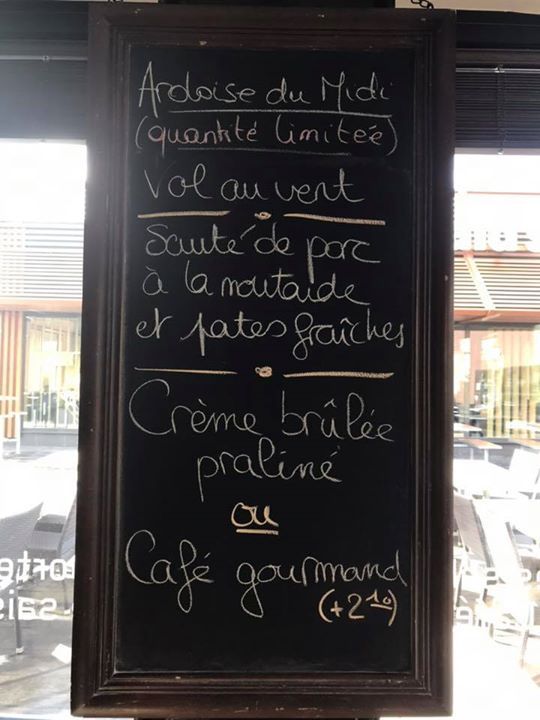 Ardoise du Midi
(quantité limitée)
Vol au vent
Sauté de porc
à la moutarde
et pates fraîches
Crème brûlée
praliné
ou
Café gourmand
(+2 10)